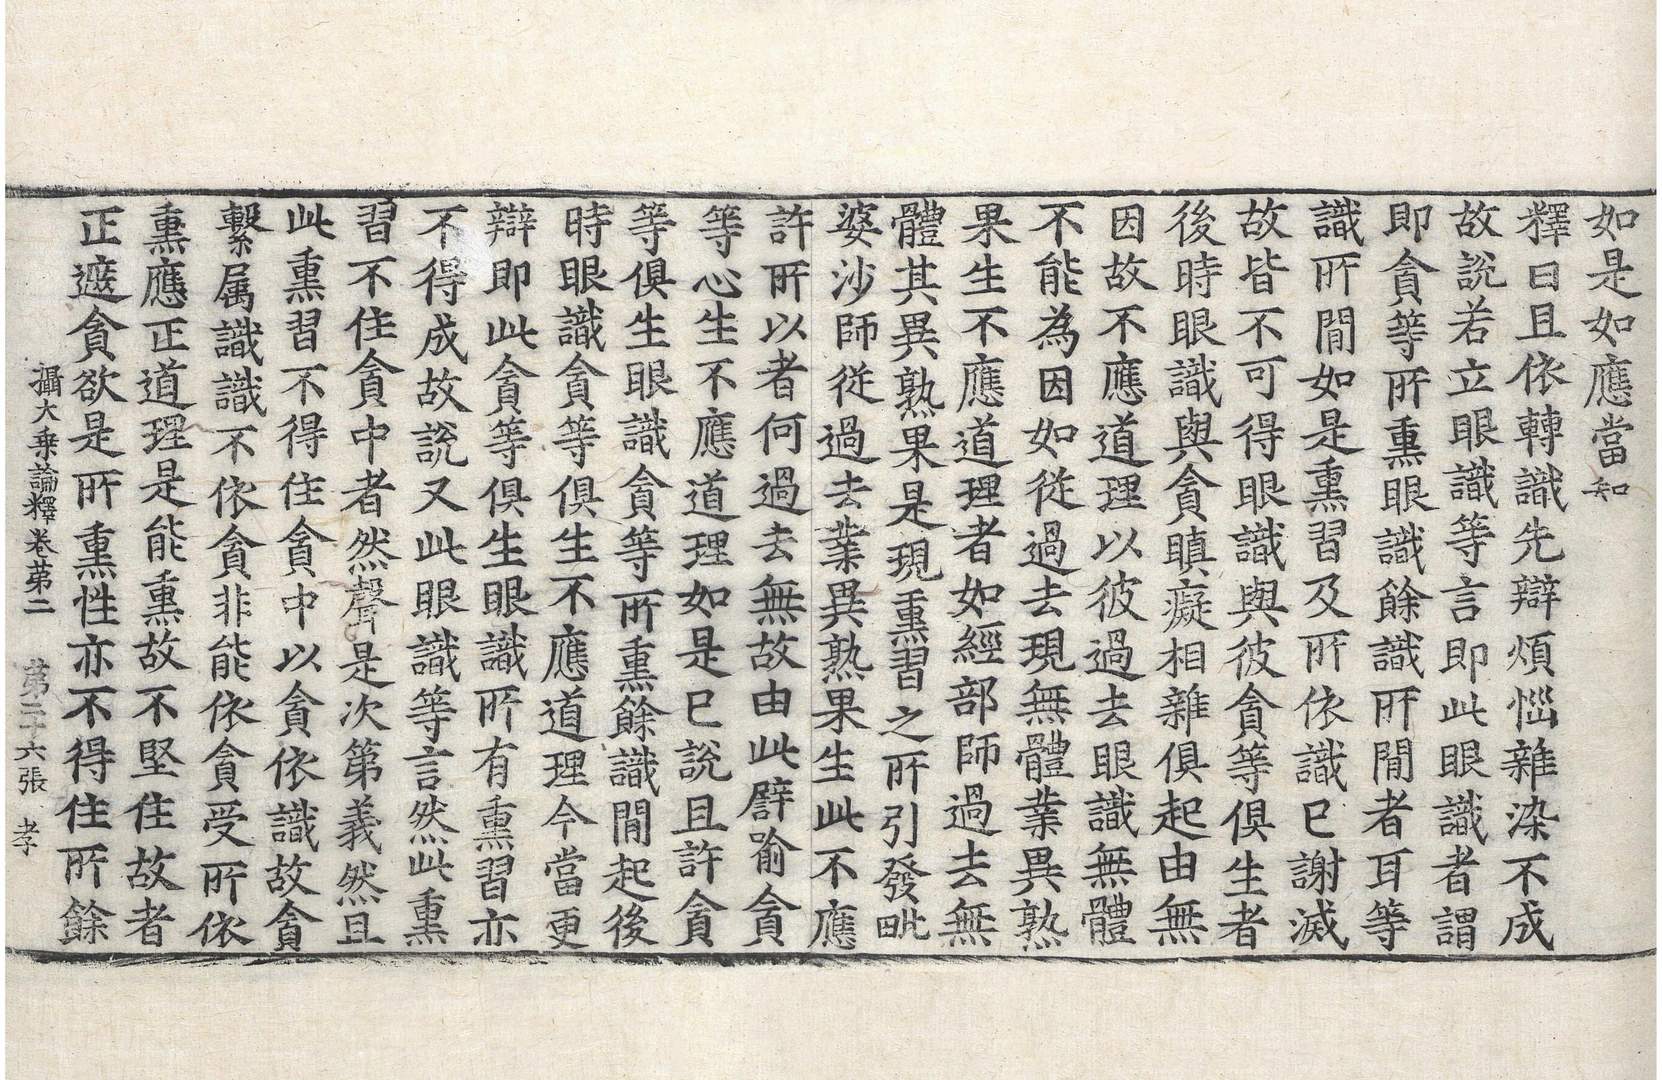 如是如應當知
釋曰且依轉識先辯煩惱雜染不成
故說若立眼識等言即此眼識者謂
即貪等所熏眼識餘識所間者耳等
識所間如是熏習及所依識已謝滅
故皆不可得眼識與彼貪等俱生者
後時眼識與貪瞋癡相雜俱起由無
因故不應道理以彼過去眼識無體
不能為因如從過去現無體業異熟
果生不應道理者如經部師過去無
體其異熟果是現熏習之所引發毗
婆沙師從過去業異熟果生此不應
許所以者何過去無故由此譬喻貪
等心生不應道理如是已說且許貪
等俱生眼識貪等所熏餘識間起後
時眼識貪等俱生不應道理今當更
辯即此貪等俱生眼識所有熏習亦
不得成故說又此眼識等言然此熏
習不住貪中者然聲是次第義然且
此熏習不得住貪中以貪依識故貪
繫屬識識不依貪非能依貪受所依
熏應正道理是能熏故不堅住故者
正遮貪欲是所熏性亦不得住所餘
攝大乘論釋卷第二　第二十六張　孝